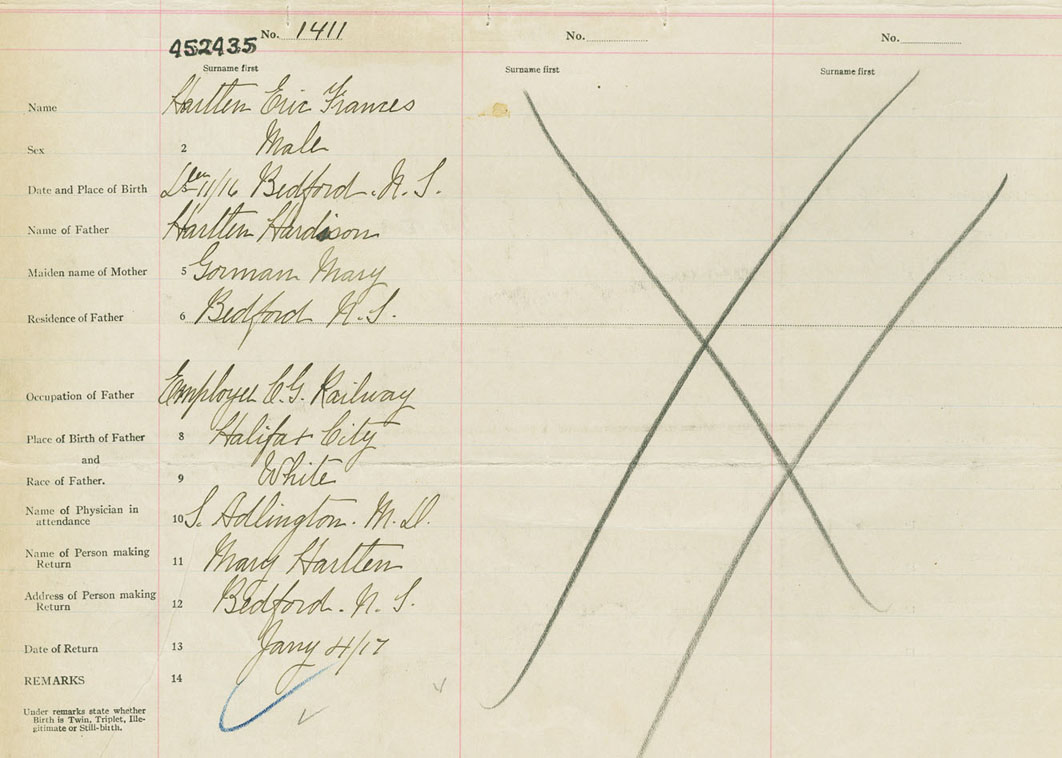 No. 1411
No.
No.
452435
Surname first
Surname first
Surname first
Name Hartlen Eric Frances
Sex 2 Male
Date and Place of Birth Dec 11/16 Bedford. N. S.
Name of Father Hartlen Hardison
Maiden name of Mother 5 Gorman Mary
Residence of Father 6 Bedford N. S.
Occupation of Father Employee C. G. Railway
Place of Birth of Father 8 Halifax City
and
Race of Father. 9 White
Name of Physician in
attendance 10 S. Adlington. M. D.
Name of Person making
Return 11 Mary Hartlen
Address of Person making
Return 12 Bedford. N. S.
Date of Return 13 Jany 4/17
REMARKS 14
Under remarks state whether
Birth is Twin, Triplet, Ille-
gitimate or Still-birth.